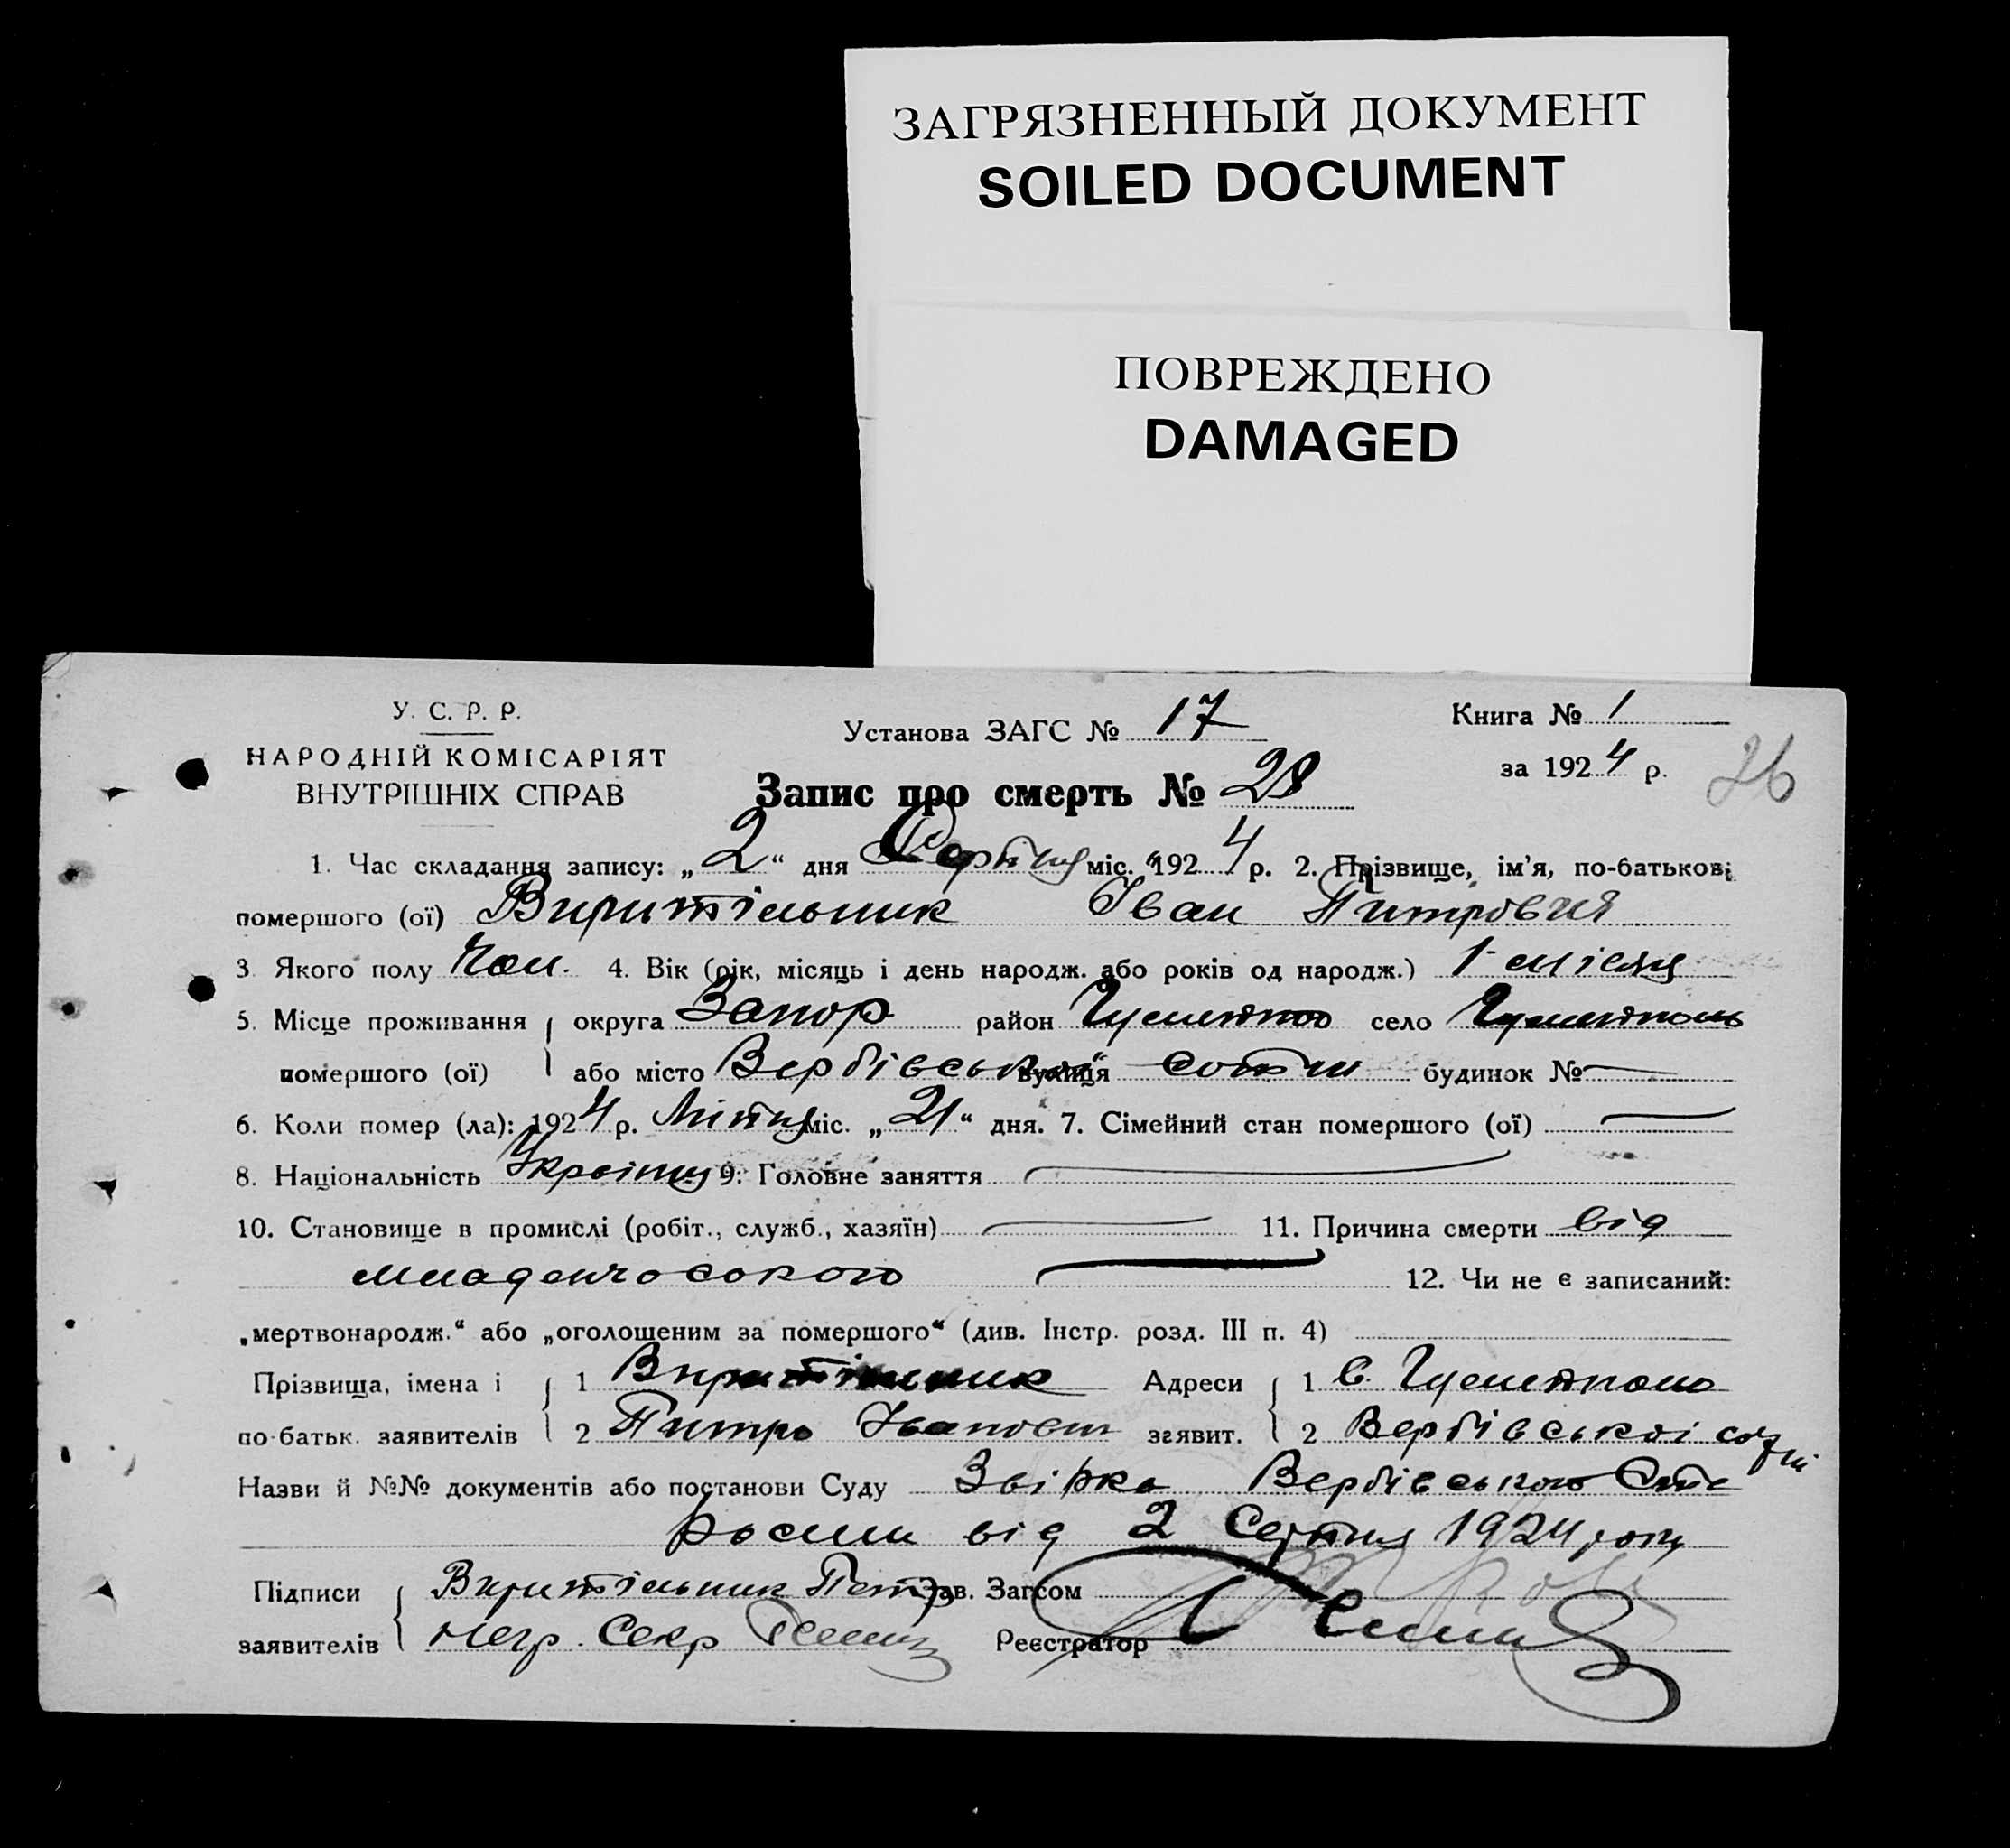 ЗАГРЯЗНЕННЫЙ ДОКУМЕНТ
SOILED DOCUMENT
ПОВРЕЖДЕНО
DAMAGED
У. С. Р. Р.
НАРОДНІЙ КОМІСАРІЯТ
ВНУТРІШНІХ СПРАВ
Установа ЗАГС № 17
Книга № 1
за 1924 р.
26
Запис про смерть № 28
1. Час складання запису: „2“ дня Серпня міс. 1924 р. 2. Прізвище, ім'я, по-батькові
помершого (ої) Виритільник Іван Питрович
3 Якого полу Чол. 4. Вік (рік, місяць і день народж. або років од народж.) 1 місяц
5. Місце проживання округа Запор район село
помершого (ої) або місто Вербівської вулиця сотні будинок №
6. Коли помер (ла): 1924 р. Літня міс. „21“ дня. 7. Сімейний стан помершого (ої)
8. Національність 9. Головне заняття
10. Становище в промислі (робіт., служб., хазяїн) 11. Причина смерти від
младенчоського 12. Чи не є записаний:
„мертвонародж.“ або „оголошеним за помершого“ (див. Інстр. розд. III п. 4)
Прізвища, імена і 1 Виритільник Адреси 1 с.
по-батьк. заявителів 2 Питро Іванович заявит. 2 Вербівської сотні
Назви й №№ документів або постанови Суду Вербівського
від 2 Серпня 1924 року
Підписи Виритільник Петр Зав. Загсом
заявителів Негр. Секр Реєстратор